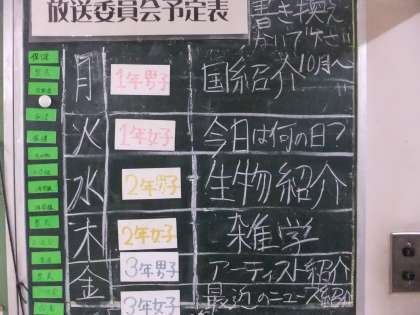 放送委員会予定表
書き換え
ないで下さい
月 1年男子 国紹介 10月〜
火 1年女子 今日は何の日?
水 2年男子 生物紹介
木 2年女子 雑学
金 3年男子 アーティスト紹介
3年女子 最近のニュース紹介